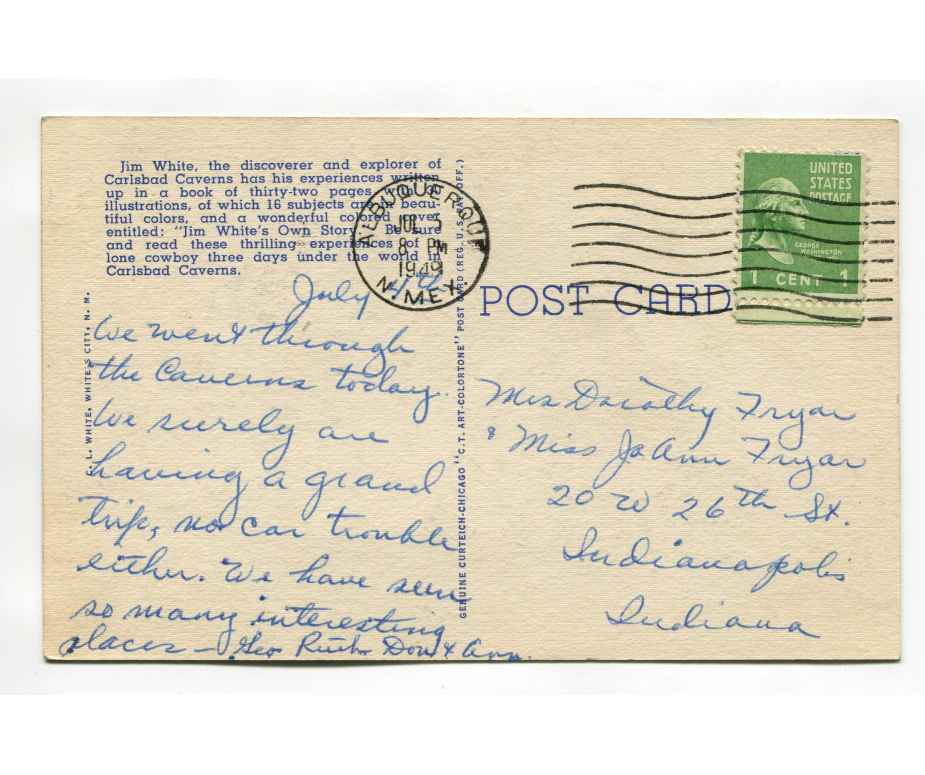 Jim White, the discoverer and explorer of
Carlsbad Caverns has his experiences written
up in a book of thirty-two pages, with
illustrations, of which 16 subjects are in beau-
tiful colors, and a wonderful colored cover
entitled: "Jim White's Own Story." Be sure
and read these thrilling experiences of a
lone cowboy three days under the world in
Carlsbad Caverns.
July 4th
We went through
the Caverns today.
We surely are
having a grand
trip, no car trouble
either. We have seen
so many interesting
places – Geo Ruth Don & Ann.
C. L. WHITE, WHITE'S CITY, N. M.
GENUINE CURTEICH-CHICAGO "C. T. ART-COLORTONE" POST CARD (REG. U. S. PAT. OFF.)
ALBUQUERQUE
JUL 5
8 PM
1949
N. MEX.
POST CARD
UNITED
STATES
POSTAGE
GEORGE
WASHINGTON
1 CENT 1
Mrs Dorothy Fryar
& Miss JoAnn Fryar
20 W 26th St.
Indianapolis
Indiana